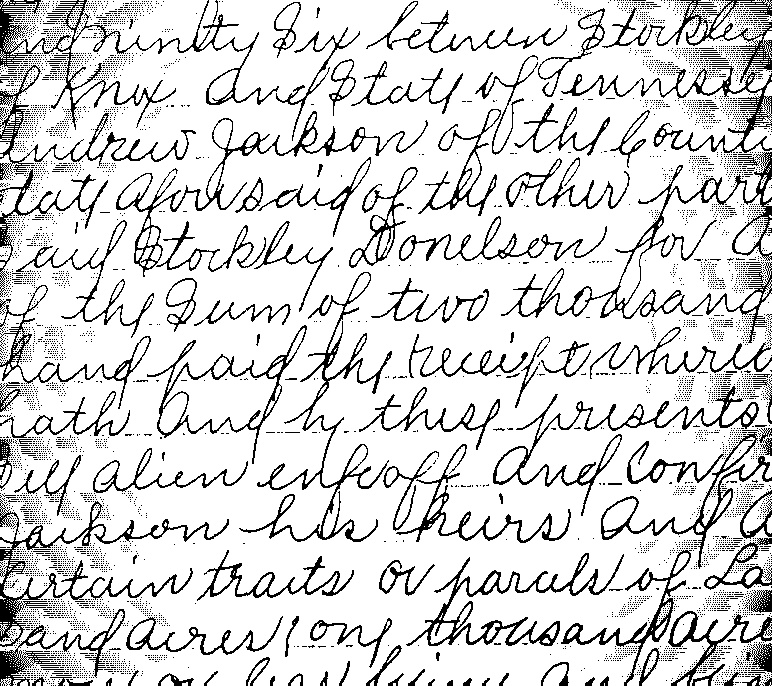 nd ninety Six between Stockley
of Knox and State of Tennessee
Andrew Jackson of the County
State aforesaid of the other part
said Stockley Donelson for a
of the Sum of two thousand
hand paid the receipt where
hath and by these presents
Sell alien enfeoff and confir
Jackson his heirs and a
certain tracts or parcels of La
sand acres one thousand acre
more or less being and